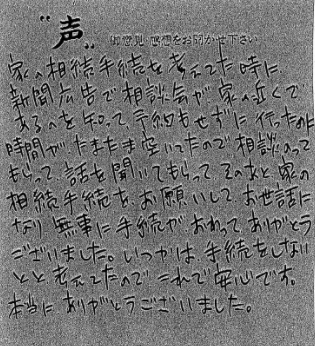 "声" 御意見・感想をお聞かせ下さい
家の相続手続を考えてた時に、
新聞広告で相談会が家の近くで
あるのを知って、予約もせずに行ったのに
時間がたまたま空いてたので相談のって
もらって、話を聞いてもらって、そのあと家の
相続手続を、お願いして、お世話に
なり無事に手続が、おわって、ありがとう
ございました。いつかは、手続をしない
とと、考えてたので これで安心です。
本当に ありがとうございました。